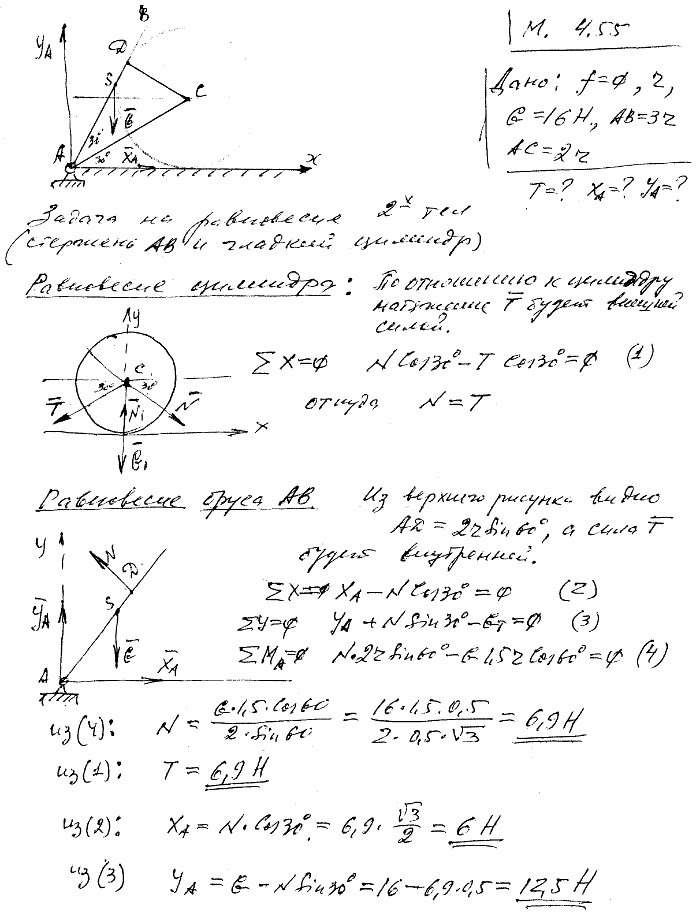 М. 4.55
Дано: f=0, r,
G=16 Н., AB=3r
AC=2r
T=? XA=? YA=?
YA
B
D
S
C
G̅
30°
30°
A
X̅A
x
Задача на равновесие 2х тел
(стержень AB и гладкий цилиндр)
Равновесие цилиндра: По отношению к цилиндру
натяжение T̅ будет внешней
силой.
y
C
30°
30°
T̅
N̅1
N̅
x
G̅1
ΣX=0 N Cos30°-T Cos30°=0 (1)
откуда N=T
Равновесие бруса AB Из верхнего рисунка видно
AD=2rSin60°, а сила T̅
будет внутренней.
y
N̅
D
S
Y̅A
G̅
A
X̅A
ΣX=0 XA-NCos30°=0 (2)
ΣY=0 YA+NSin30°-GT=0 (3)
ΣMA=0 N·2rSin60°-G1,5rCos60°=0 (4)
из(4): N = G·1,5·Cos60 / 2·Sin60 = 16·1,5·0,5 / 2·0,5·√3 = 6,9Н
из(1): T = 6,9Н
из(2): XA = N·Cos30° = 6,9·√3/2 = 6Н
из(3) YA = G-NSin30°=16-6,9·0,5=12,5Н